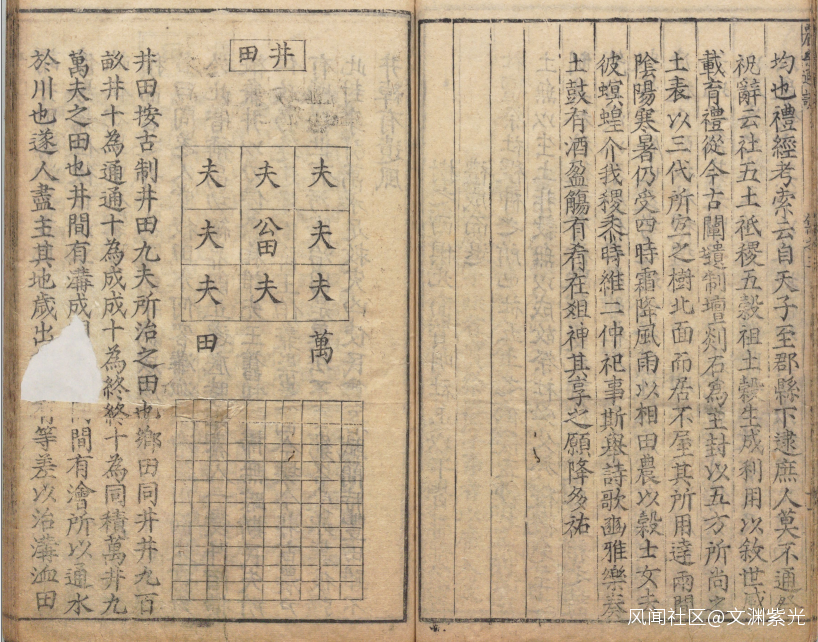 均也禮經考索云自天子至郡縣下逮庶人莫不通祭
祝辭云社五土祗稷五穀祖土穀生成利用以敘世
載育禮從今古闡遺制壇剡石為主封以五方所尚之
土表以三代所宜之樹北面而居不屋其所用達雨
陰陽寒暑仍受四時霜降風雨以相田農以穀士女去
彼螟蝗介我稷黍時維二仲祀事斯舉詩歌豳雅樂奏
土鼓有酒盈觴有肴在俎神其享之願降多祐
井田
夫夫夫
夫公田夫
夫夫夫
萬田
井田按古制井田九夫所治之田也鄉田同井井九百
畝井十為通通十為成成十為終終十為同積萬井九
萬夫之田也井間有溝成間有澮所以通水
於川也遂人盡主其地歲出有等差以治溝洫田
风闻社区@文渊紫光